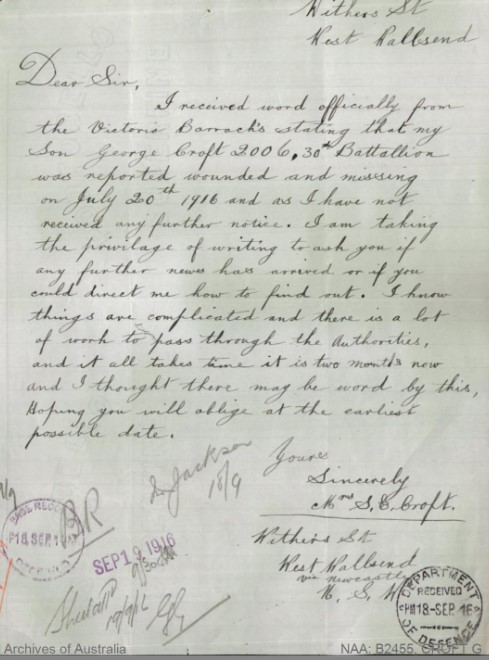 Withers St
West Wallsend
Dear Sir,
I received word officially from
the Victoria Barrack's stating that my
Son George Croft 2006, 30th Battallion
was reported wounded and missing
on July 20th 1916 and as I have not
received any further notice. I am taking
the privilage of writing to ask you if
any further news has arrived or if you
could direct me how to find out. I know
things are complicated and there is a lot
of work to pass through the Authorities,
and it all takes time it is two months now
and I thought there may be word by this,
Hoping you will oblige at the earliest
possible date.
Yours
Sincerely
Mrs S. E. Croft.
Jackson
18/9
BR
BASE RECORDS
18 SEP 1
DEFENCE
SEP 19 1916
Withers St
West Wallsend
via Newcastle
N. S. W
DEPARTMENT
RECEIVED
PM 18-SEP. 16
OF DEFENCE
Archives of Australia
NAA: B2455, CROFT G